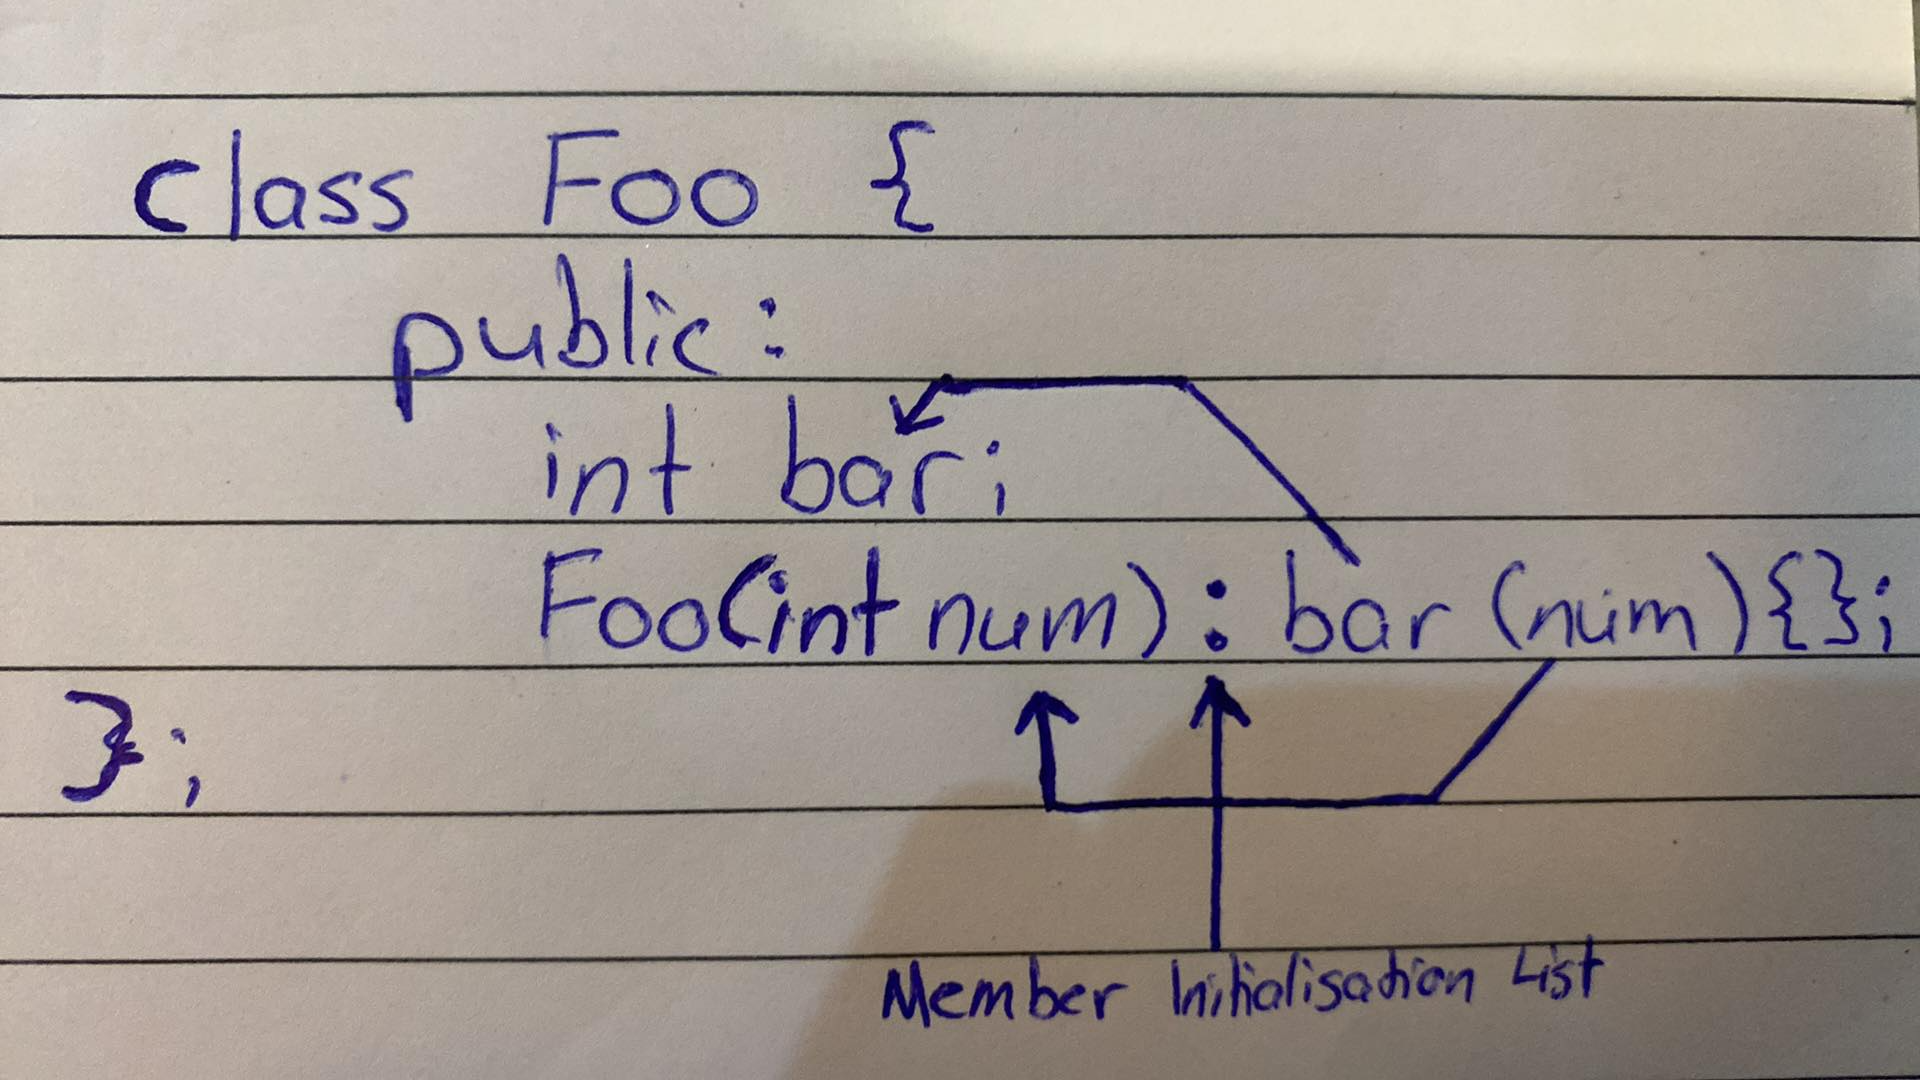 class Foo {
public:
int bar;
Foo(int num) : bar (num) {};
};
Member Initialisation List